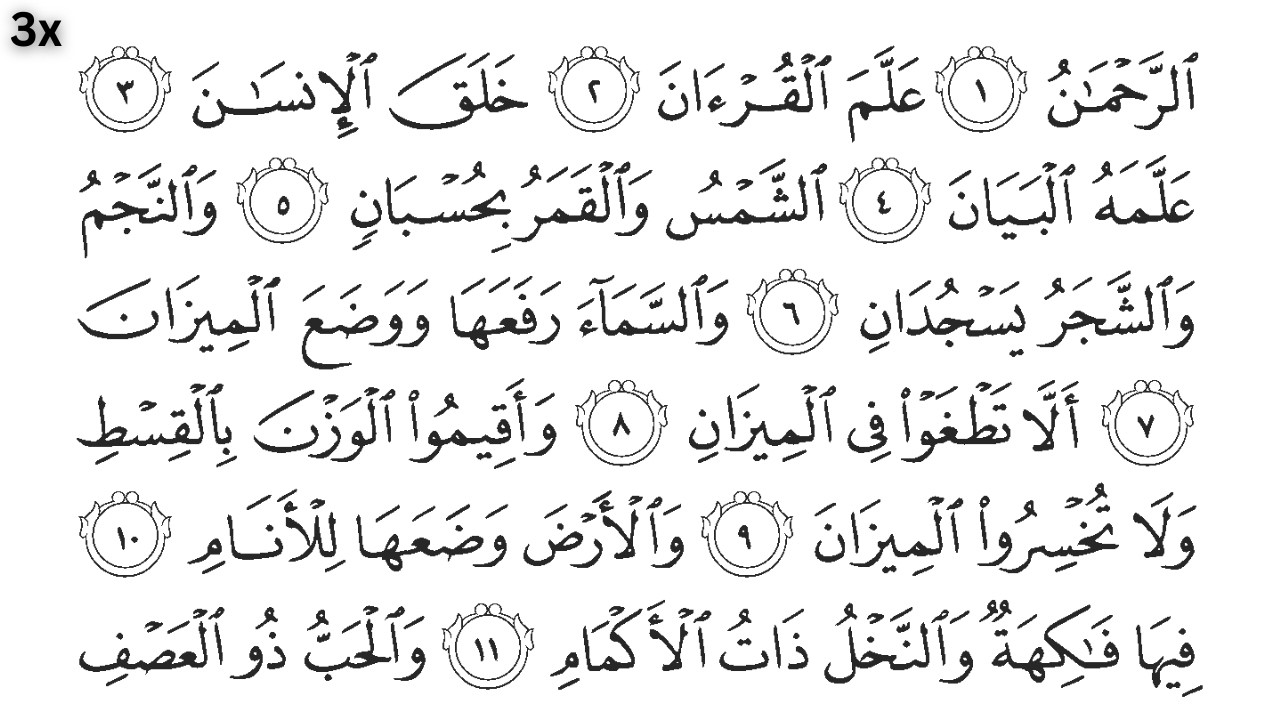 3x
ٱلرَّحۡمَـٰنُ ١ عَلَّمَ ٱلۡقُرۡءَانَ ٢ خَلَقَ ٱلۡإِنسَـٰنَ ٣
عَلَّمَهُ ٱلۡبَيَانَ ٤ ٱلشَّمۡسُ وَٱلۡقَمَرُ بِحُسۡبَانٍ ٥ وَٱلنَّجۡمُ
وَٱلشَّجَرُ يَسۡجُدَانِ ٦ وَٱلسَّمَآءَ رَفَعَهَا وَوَضَعَ ٱلۡمِيزَانَ
٧ أَلَّا تَطۡغَوۡاْ فِى ٱلۡمِيزَانِ ٨ وَأَقِيمُواْ ٱلۡوَزۡنَ بِٱلۡقِسۡطِ
وَلَا تُخۡسِرُواْ ٱلۡمِيزَانَ ٩ وَٱلۡأَرۡضَ وَضَعَهَا لِلۡأَنَامِ ١٠
فِيهَا فَـٰكِهَةٌ وَٱلنَّخۡلُ ذَاتُ ٱلۡأَكۡمَامِ ١١ وَٱلۡحَبُّ ذُو ٱلۡعَصۡفِ